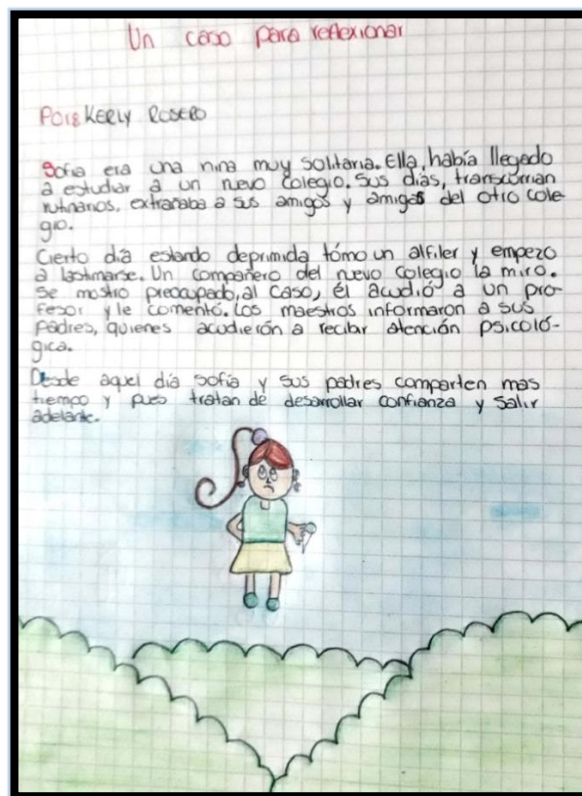 Un caso para reflexionar
Por: KERLY ROSERO
Sofia era una nina muy solitaria. Ella, había llegado
a estudiar a un nevo colegio. Sus dias, transcurrian
rutinarios, extrañaba a sus amigos y amigas del otro cole
gio.
Cierto día estando deprimida tómo un alfiler y empezo
a lastimarse. Un compañero del nuevo colegio la miro.
Se mostro preocupado, al caso, él acudió a un pro-
fesor y le comentó. Los maestros informaron a sus
padres, quienes acudierón a recibir atención psicoló-
gica.
Desde aquel día sofia y sus padres comparten mas
tiempo y pues tratan de desarrollar confianza y salir
adelante.